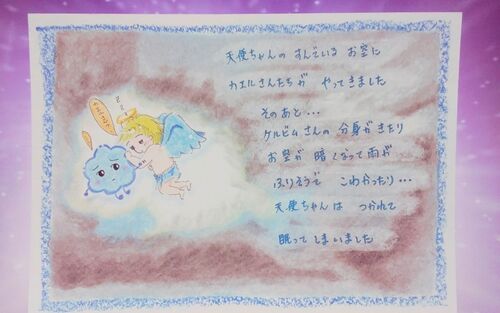 天使ちゃんの すんでいる お空に
カエルさんたちが やってきました
そのあと...
ケルビムさんの 分身がきたり
お空が 暗くなって雨が
ふりそうで こわかったり...
天使ちゃんは つかれて
眠ってしまいました